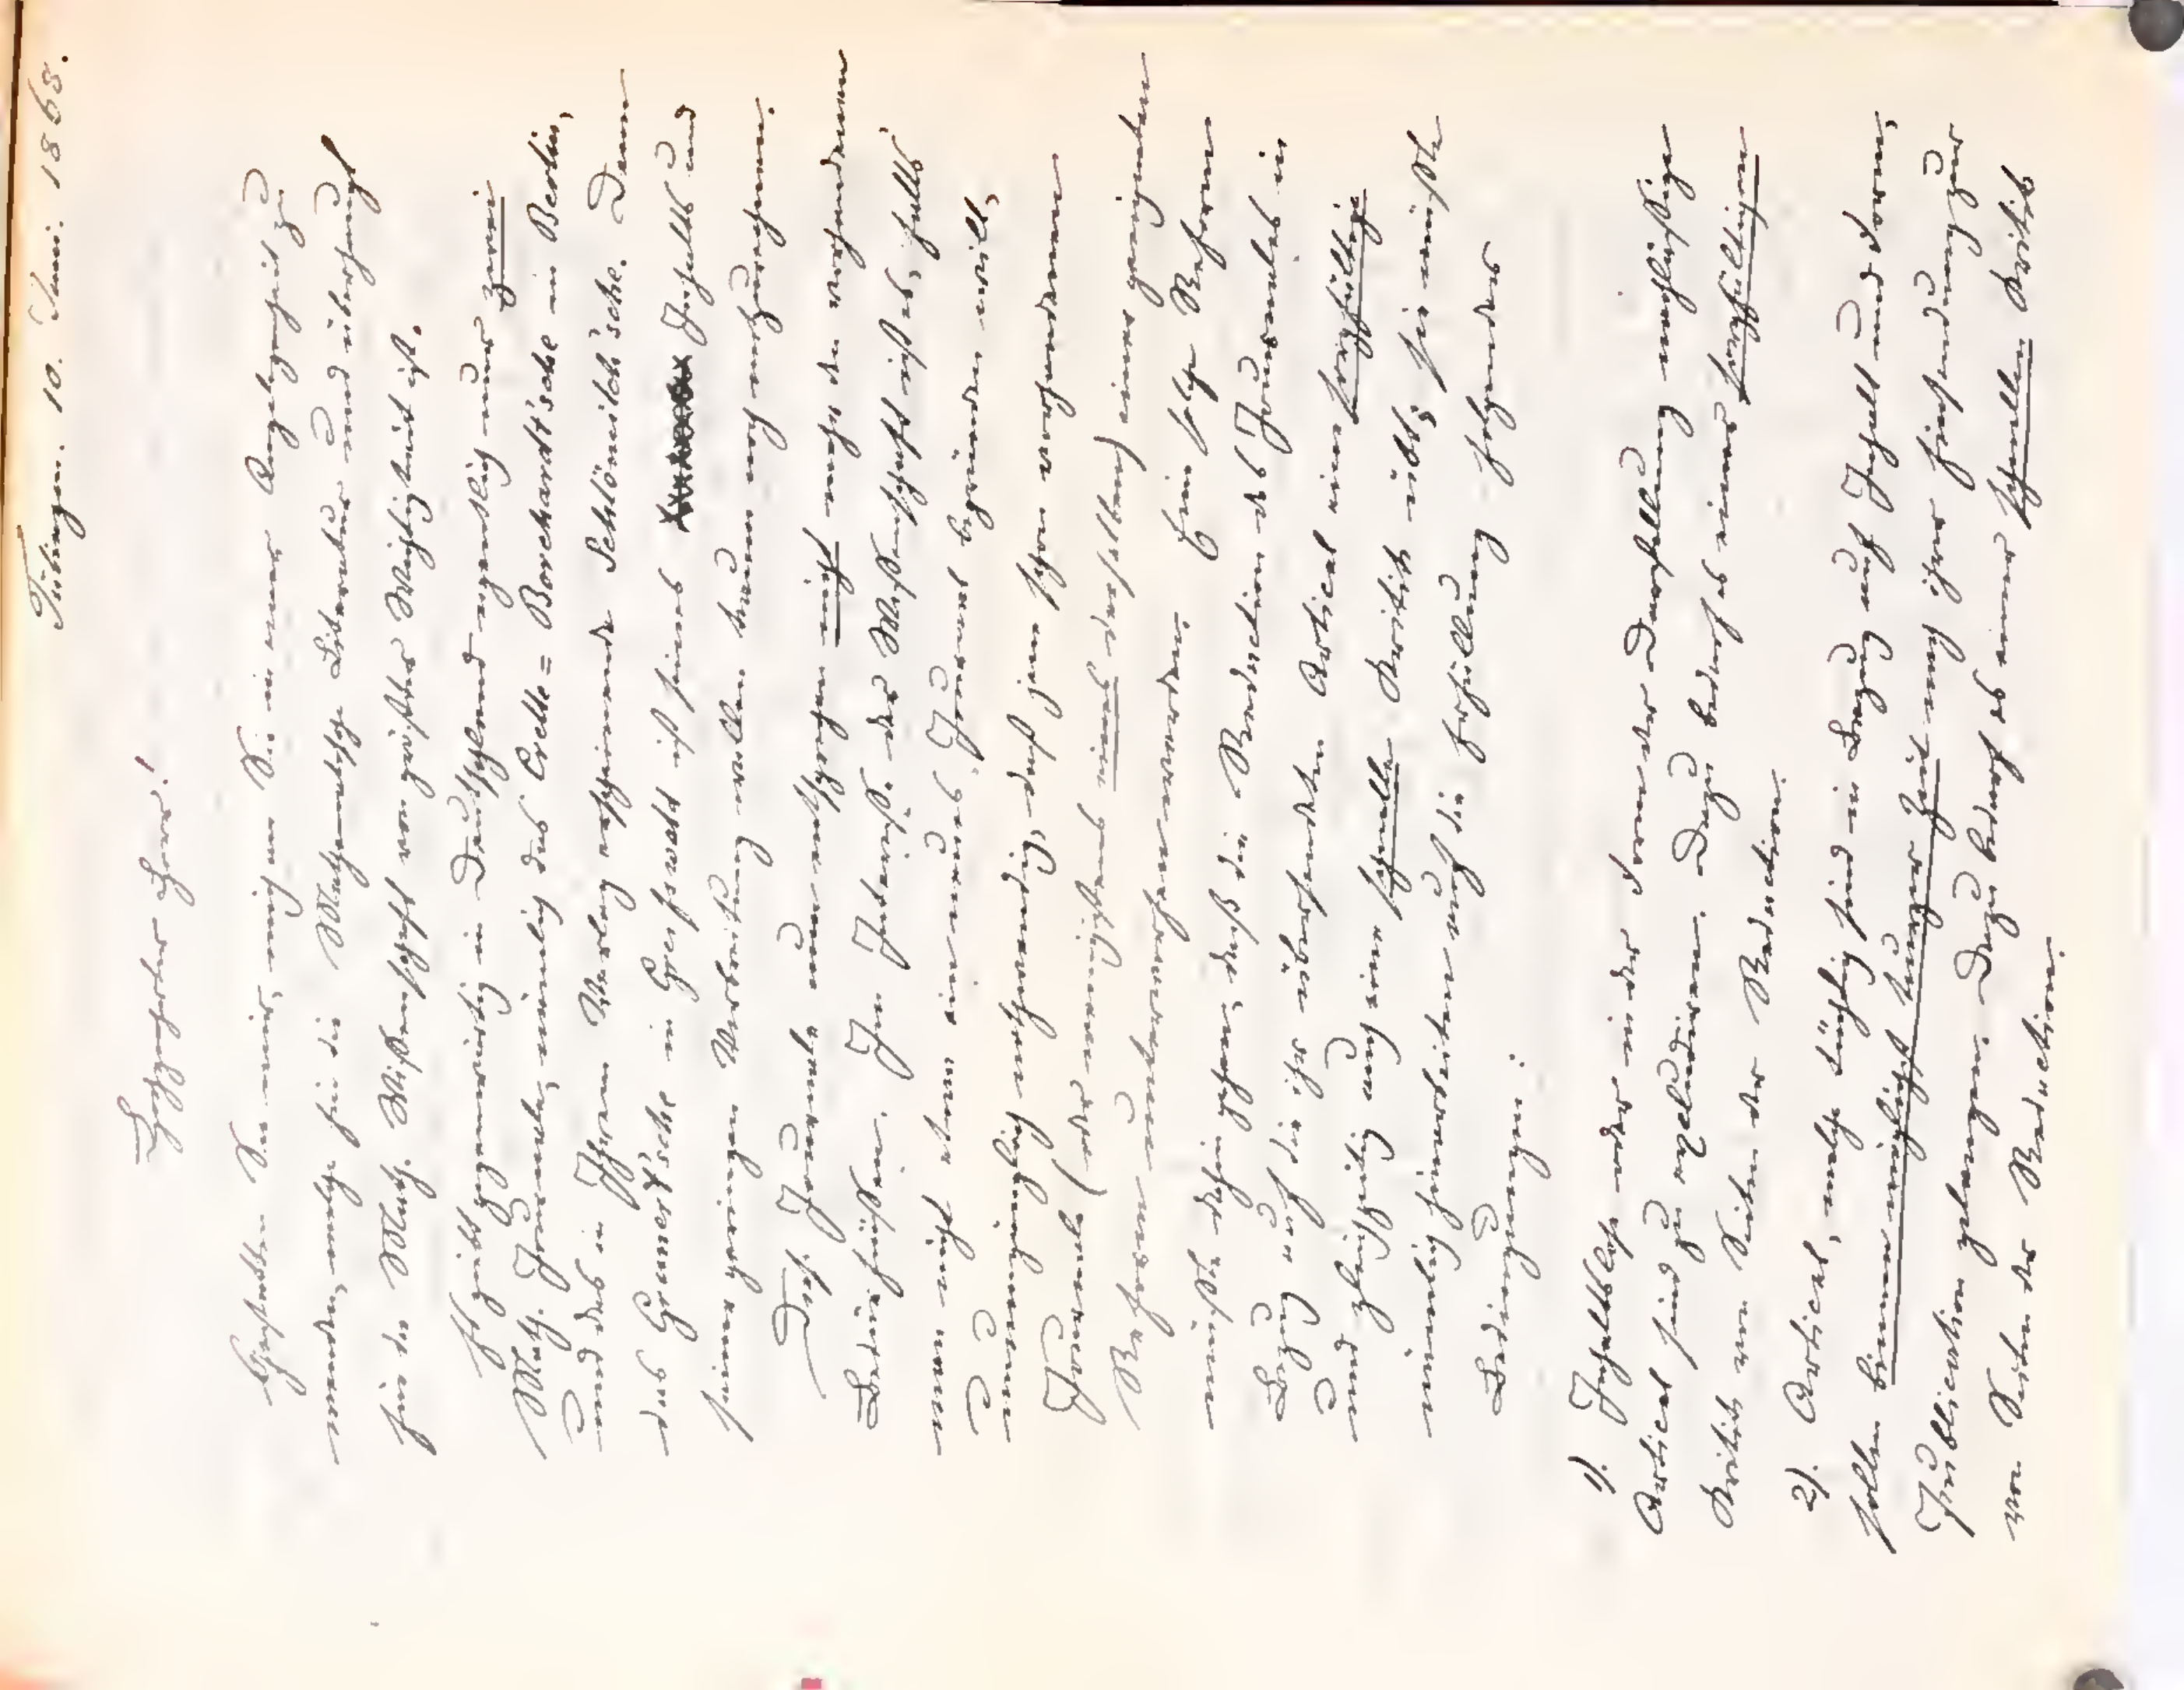 Tübingen. 10. Juni. 1868.
Hochgeehrter Herr!
Gestatten Sie mir, mich an Sie in einer Angelegenheit zu
wenden, welche für die Mathematische Literatur und überhaupt
für die Math. Wissenschaft von größter Wichtigkeit ist.
Es giebt gegenwärtig in Deutschland eigentlich nur zwei
Math. Journale, nämlich das Crelle=Borchardt'sche in Berlin,
und das in Ihrem Verlag erscheinende Schlömilch'sche. Denn
das Grunert'sche in Greifswald ist seines Inhalts und
seiner geringen Verbreitung willen kaum noch mitzurechnen.
Diese Journale nun entsprechen nicht mehr den vorhandenen
Bedürfnissen. Im Interesse der Wissenschaft ist es, falls
man nicht etwa ein neues Journal begründen will,
unumgänglich nothwendig, daß jene schon vorhandenen
Journale (oder wenigstens eines derselben) einer geeigneten
Reform unterworfen werden. Eine solche Reform
müßte dahin gehen, daß die Redaction des Journales in
Bezug auf die ihr übersendeten Artical eine sorgfältige
und gleichzeitig auch eine schnelle Kritik übt; sie müßte
nämlich hinarbeiten auf die Erfüllung folgender
Bedingungen:
1). Inhaltslose oder in der Form der Darstellung nachlässige
Artical sind zu excludiren. Dazu bedarf es einer sorgfältigen
Kritik von Seiten der Redaction.
2). Artical, welche tüchtig sind in Bezug auf Inhalt und Form,
sollen binnen möglichst kurzer Zeit nach ihrer Einsendung zur
Publication gelangen. Dazu bedarf es einer schnellen Kritik
von Seiten der Redaction.